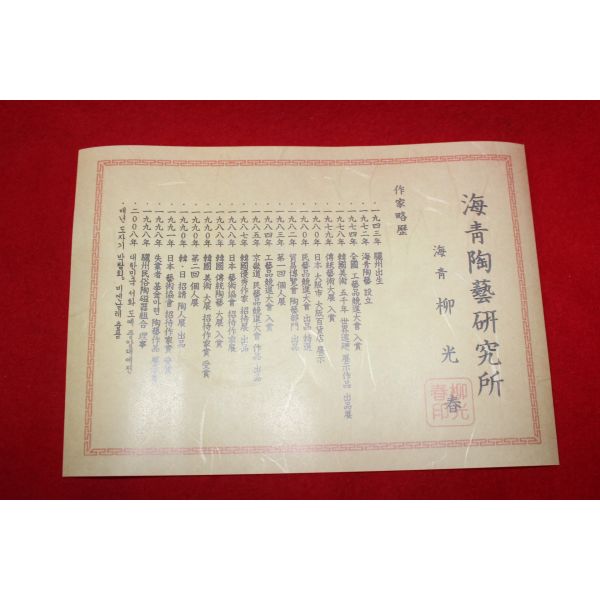 海青陶藝硏究所
海青 柳光春
柳光春印
作家略歷
·一九四二年 驪州出生
·一九七二年 海青陶藝 設立
·一九七四年 全國 工藝品競進大會 入賞
·一九七八年 韓國美術 五千年 世界巡廻 展示作品 出品展
·一九七九年 傳統藝術大展 入賞
·一九八〇年 日本 大阪市 大阪百貨店 展示
·一九八〇年 民藝品競進大會 出品 特選
·一九八二年 貿易博覽會 陶藝部門 出品
·一九八三年 第一回 個人展
·一九八四年 工藝品競進大會 入賞
·一九八五年 京畿道 民藝品競進大會 作品 出品
·一九八七年 韓國優秀作家 招待展 出品
·一九八八年 日本 藝術協會 招待作家展
·一九八八年 韓國 傳統陶藝 大展 入賞
·一九九〇年 韓國 美術 大展 招待作家賞 受賞
·一九九〇年 第二回 個人展
·一九九〇年 韓·日 招請 陶人展 出品
·一九九一年 日本 藝術協會 招待作家賞 受賞
·一九九八年 失業者 基金마련 陶藝作品
·一九九八年 驪州民俗陶磁器組合 理事
·二〇〇八年 대한민국 서화 도예
·매년 도자기 박람회, 비엔날레 출품